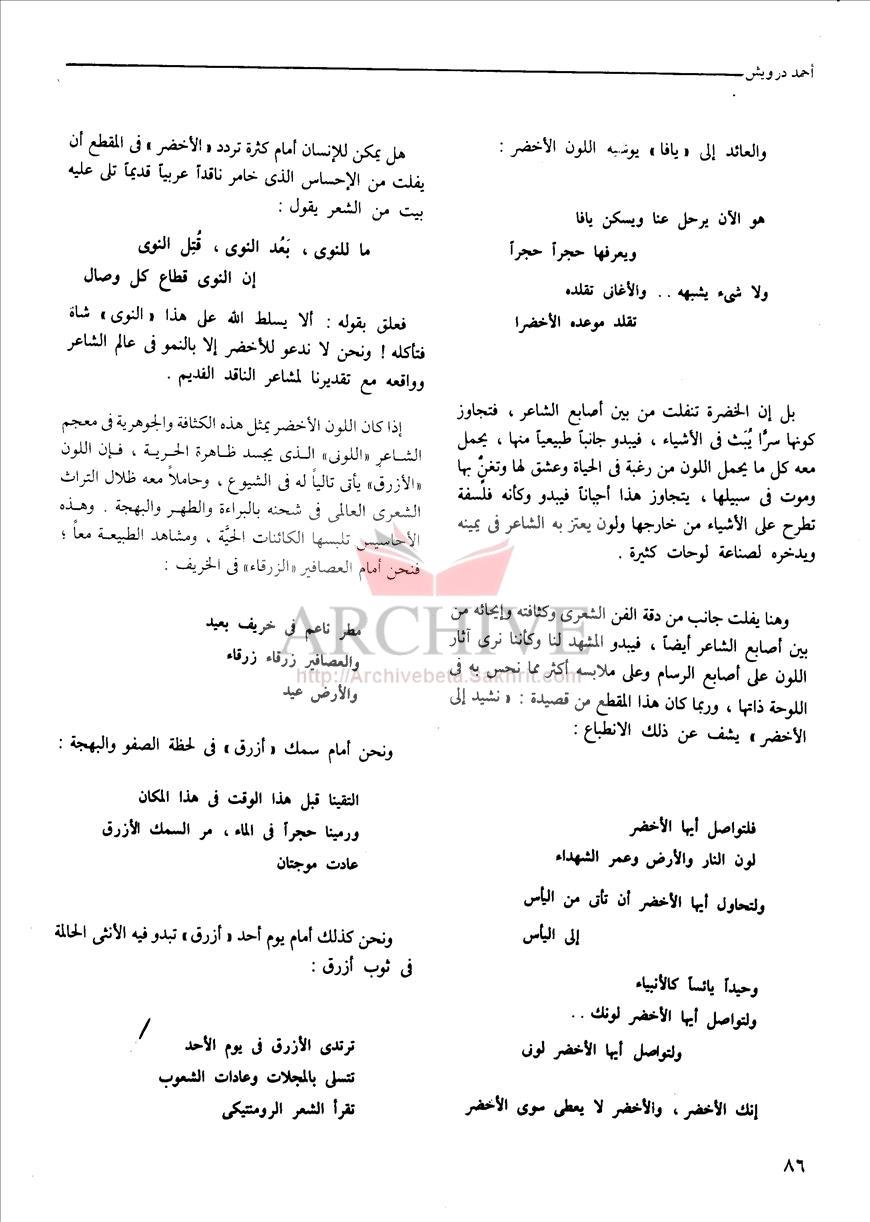 أحمد درويش
والعائد إلى «يافا» يوشيه اللون الأخضر :
هو الآن يرحل عنا ويسكن يافا
ويعرفها حجراً حجراً
ولا شىء يشبهه .. والأغانى تقلده
تقلد موعده الأخضرا
بل إن الخضرة تنفلت من بين أصابع الشاعر ، فتجاوز
كونها سرًّا يُبَث فى الأشياء ، فيبدو جانباً طبيعياً منها ، يحمل
معه كل ما يحمل اللون من رغبة فى الحياة وعشق لها وتغنٍّ بها
وموت فى سبيلها ، يتجاوز هذا أحياناً فيبدو وكأنه فلسفة
تطرح على الأشياء من خارجها ولون يعتز به الشاعر فى يمينه
ويدخره لصناعة لوحات كثيرة .
وهنا يفلت جانب من دقة الفن الشعرى وكثافته وإيحائه من
بين أصابع الشاعر أيضاً ، فيبدو المشهد لنا وكأننا نرى آثار
اللون على أصابع الرسام وعلى ملابسه أكثر مما نحس به فى
اللوحة ذاتها ، وربما كان هذا المقطع من قصيدة : « نشيد إلى
الأخضر » يشف عن ذلك الانطباع :
فلتواصل أيها الأخضر
لون النار والأرض وعمر الشهداء
ولتحاول أيها الأخضر أن تأتى من اليأس
إلى اليأس
وحيداً يائساً كالأنبياء
ولتواصل أيها الأخضر لونك ..
ولتواصل أيها الأخضر لونى
إنك الأخضر ، والأخضر لا يعطى سوى الأخضر
هل يمكن للإنسان أمام كثرة تردد «الأخضر » فى المقطع أن
يفلت من الإحساس الذى خامر ناقداً عربياً قديماً تلى عليه
بيت من الشعر يقول :
ما للنوى ، بَعُد النوى ، قُتِل النوى
إن النوى قطاع كل وصال
فعلق بقوله : ألا يسلط الله على هذا «النوى » شاة
فتأكله ! ونحن لا ندعو للأخضر إلا بالنمو فى عالم الشاعر
وواقعه مع تقديرنا لمشاعر الناقد القديم .
إذا كان اللون الأخضر يمثل هذه الكثافة والجوهرية فى معجم
الشاعر «اللونى» الذى يجسد ظاهرة الحرية ، فإن اللون
«الأزرق» يأتى تالياً له فى الشيوع ، وحاملاً معه ظلال التراث
الشعرى العالمى فى شحنه بالبراءة والطهر والبهجة . وهذه
الأحاسيس تلبسها الكائنات الحيَّة ، ومشاهد الطبيعة معاً ؛
فنحن أمام العصافير «الزرقاء» فى الخريف :
مطر ناعم فى خريف بعيد
والعصافير زرقاء زرقاء
والأرض عيد
ونحن أمام سمك « أزرق » فى لحظة الصفو والبهجة :
التقينا قبل هذا الوقت فى هذا المكان
ورمينا حجراً فى الماء ، مر السمك الأزرق
عادت موجتان
ونحن كذلك أمام يوم أحد « أزرق » تبدو فيه الأنثى الحالمة
فى ثوب أزرق :
ترتدى الأزرق فى يوم الأحد
تتسلى بالمجلات وعادات الشعوب
تقرأ الشعر الرومنتيكى
٨٦
ARCHIVE
http://Archivebeta.Sakhrit.com